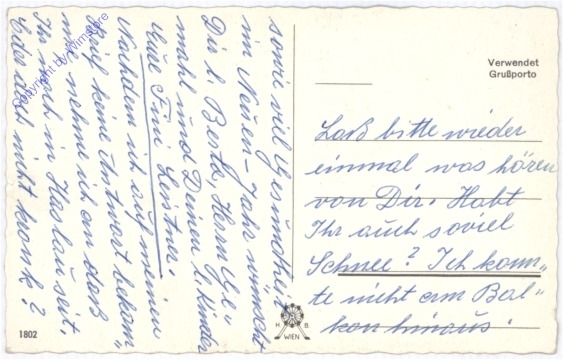 sowie viel Gesundheit
im Neuen-Jahr wünscht
Dir l. Berta, Herrn Ge„
mahl und Deinen l. Kinder
Eure Fini Leitner.
Nachdem ich auf meinen
Brief keine Antwort bekam„
nehme ich an daß
Ihr noch in Haslau seit.
Oder doch nicht krank?
Verwendet
Grußporto
Laß bitte wieder
einmal was hören
von Dir. Habt
Ihr auch soviel
Schnee? Ich konn„
te nicht am Bal„
kon hinaus.
H B
WIEN
1802
Copyright by wimstore